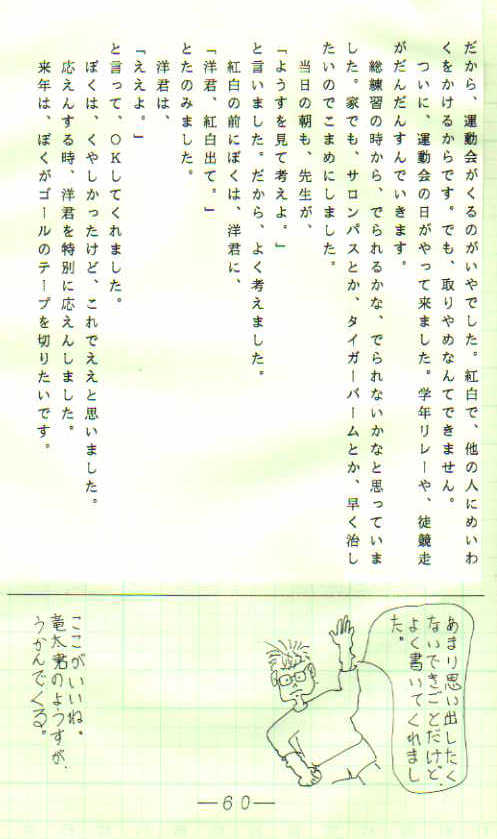 だから、運動会がくるのがいやでした。紅白で、他の人にめいわ
くをかけるからです。でも、取りやめなんてできません。
ついに、運動会の日がやって来ました。学年リレーや、徒競走
がだんだんすんでいきます。
総練習の時から、でられるかな、でられないかなと思っていま
した。家でも、サロンパスとか、タイガーバームとか、早く治し
たいのでこまめにしました。
当日の朝も、先生が、
「ようすを見て考えよ。」
と言いました。だから、よく考えました。
紅白の前にぼくは、洋君に、
「洋君、紅白出て。」
とたのみました。
洋君は、
「ええよ。」
と言って、OKしてくれました。
ぼくは、くやしかったけど、これでええと思いました。
応えんする時、洋君を特別に応えんしました。
来年は、ぼくがゴールのテープを切りたいです。
あまり思い出したく
ないできごとだけど、
よく書いてくれまし
た。
ここがいいね。
竜太君のようすが、
うかんでくる。
—60—